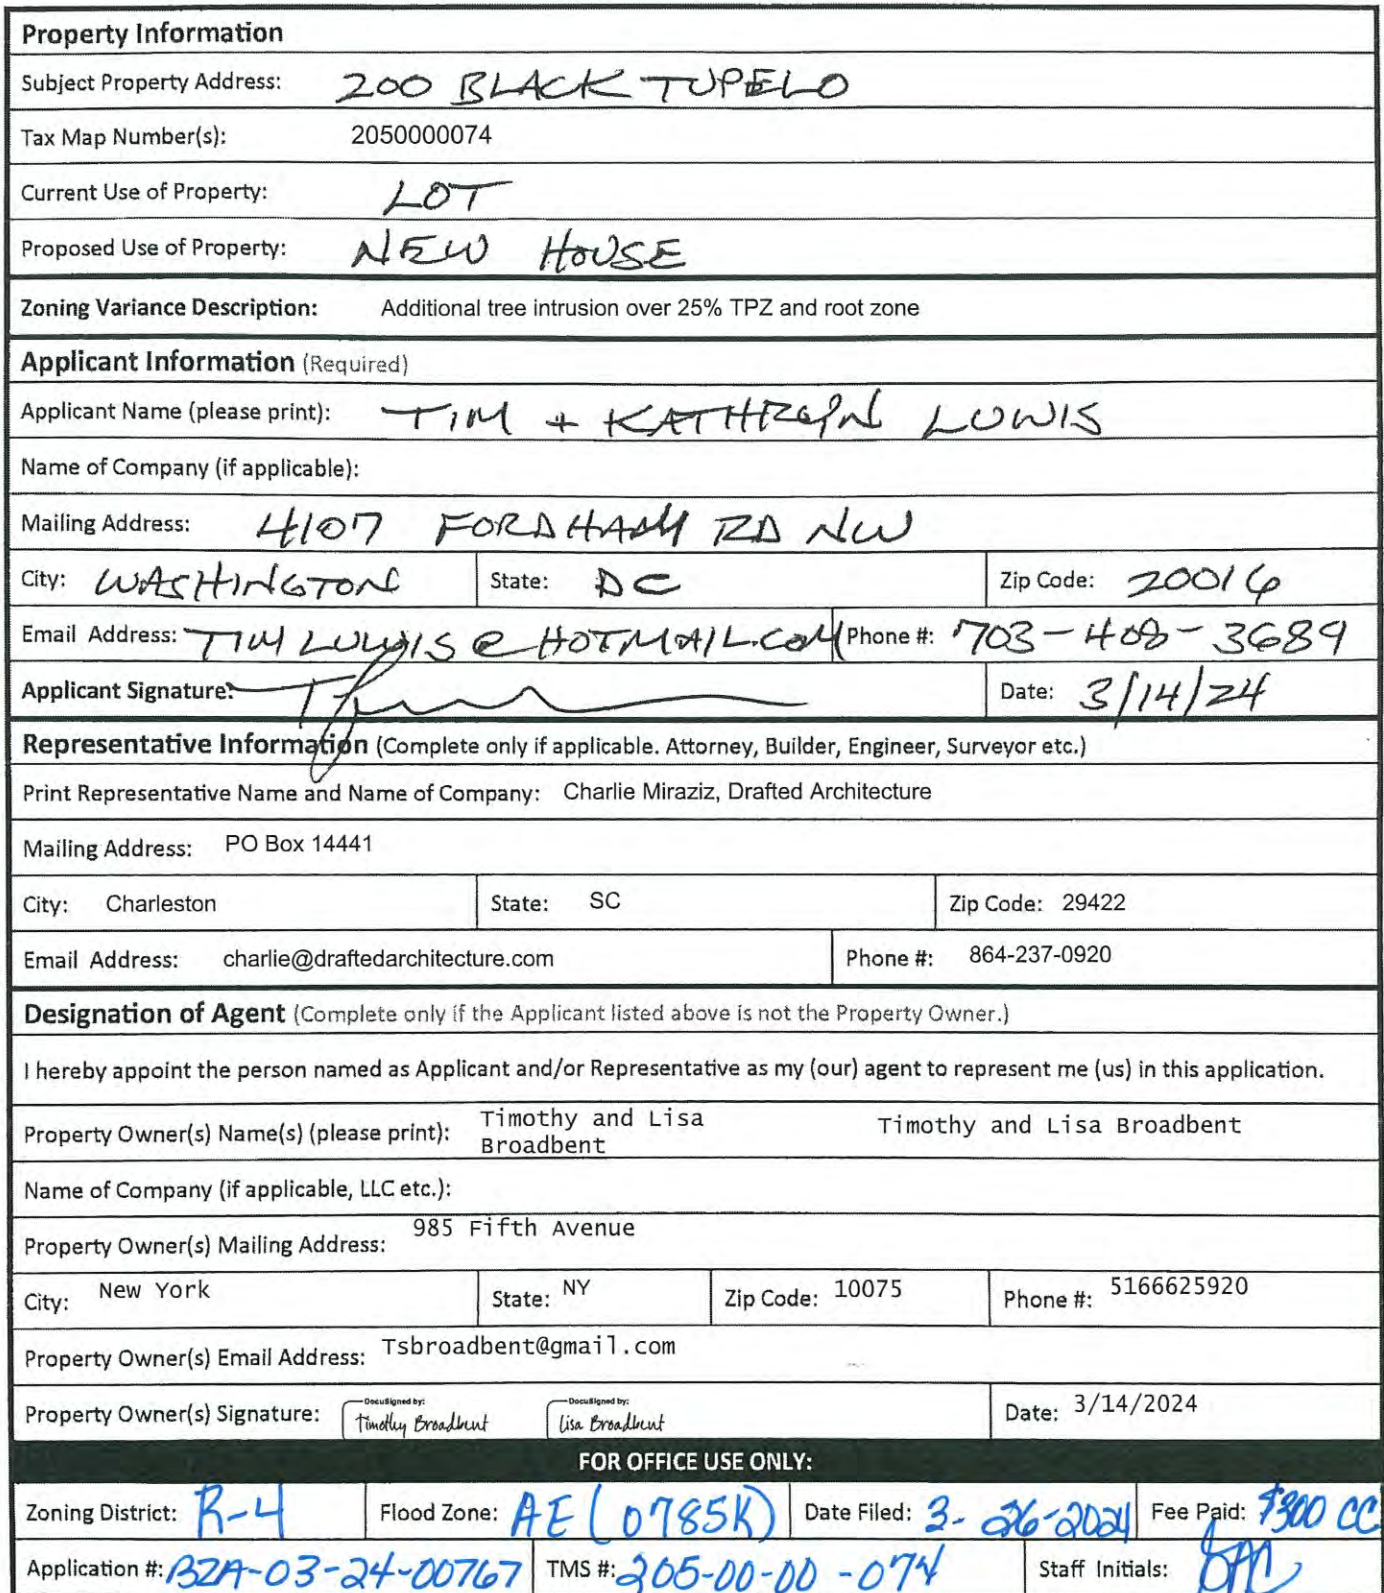 Property Information
Subject Property Address: 200 BLACK TUPELO
Tax Map Number(s): 2050000074
Current Use of Property: LOT
Proposed Use of Property: NEW HOUSE
Zoning Variance Description: Additional tree intrusion over 25% TPZ and root zone
Applicant Information (Required)
Applicant Name (please print): TIM + KATHRYN LUWIS
Name of Company (if applicable):
Mailing Address: 4107 FORDHAM RD NW
City: WASHINGTON State: DC Zip Code: 20016
Email Address: TIMLUWIS@HOTMAIL.COM Phone #: 703-408-3689
Applicant Signature: Date: 3/14/24
Representative Information (Complete only if applicable. Attorney, Builder, Engineer, Surveyor etc.)
Print Representative Name and Name of Company: Charlie Miraziz, Drafted Architecture
Mailing Address: PO Box 14441
City: Charleston State: SC Zip Code: 29422
Email Address: charlie@draftedarchitecture.com Phone #: 864-237-0920
Designation of Agent (Complete only if the Applicant listed above is not the Property Owner.)
I hereby appoint the person named as Applicant and/or Representative as my (our) agent to represent me (us) in this application.
Property Owner(s) Name(s) (please print): Timothy and Lisa Broadbent Timothy and Lisa Broadbent
Name of Company (if applicable, LLC etc.):
Property Owner(s) Mailing Address: 985 Fifth Avenue
City: New York State: NY Zip Code: 10075 Phone #: 5166625920
Property Owner(s) Email Address: Tsbroadbent@gmail.com
Property Owner(s) Signature: DocuSigned by: Timothy Broadbent DocuSigned by: Lisa Broadbent Date: 3/14/2024
FOR OFFICE USE ONLY:
Zoning District: R-4 Flood Zone: AE (0785K) Date Filed: 3-26-2024 Fee Paid: $300 CC
Application #: BZA-03-24-00767 TMS #: 205-00-00-074 Staff Initials: